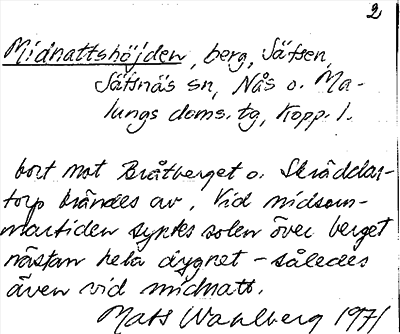 2
Midnattshöjden, berg, Säfsen,
Säfsnäs sn, Nås o. Ma-
lungs doms. tg, Kopp. l.
bort mot Bråtberget o. Skräddar-
torp brändes av. Vid midsom-
martiden syntes solen över berget
nästan hela dygnet – således
även vid midnatt.
Mats Wahlberg 1971